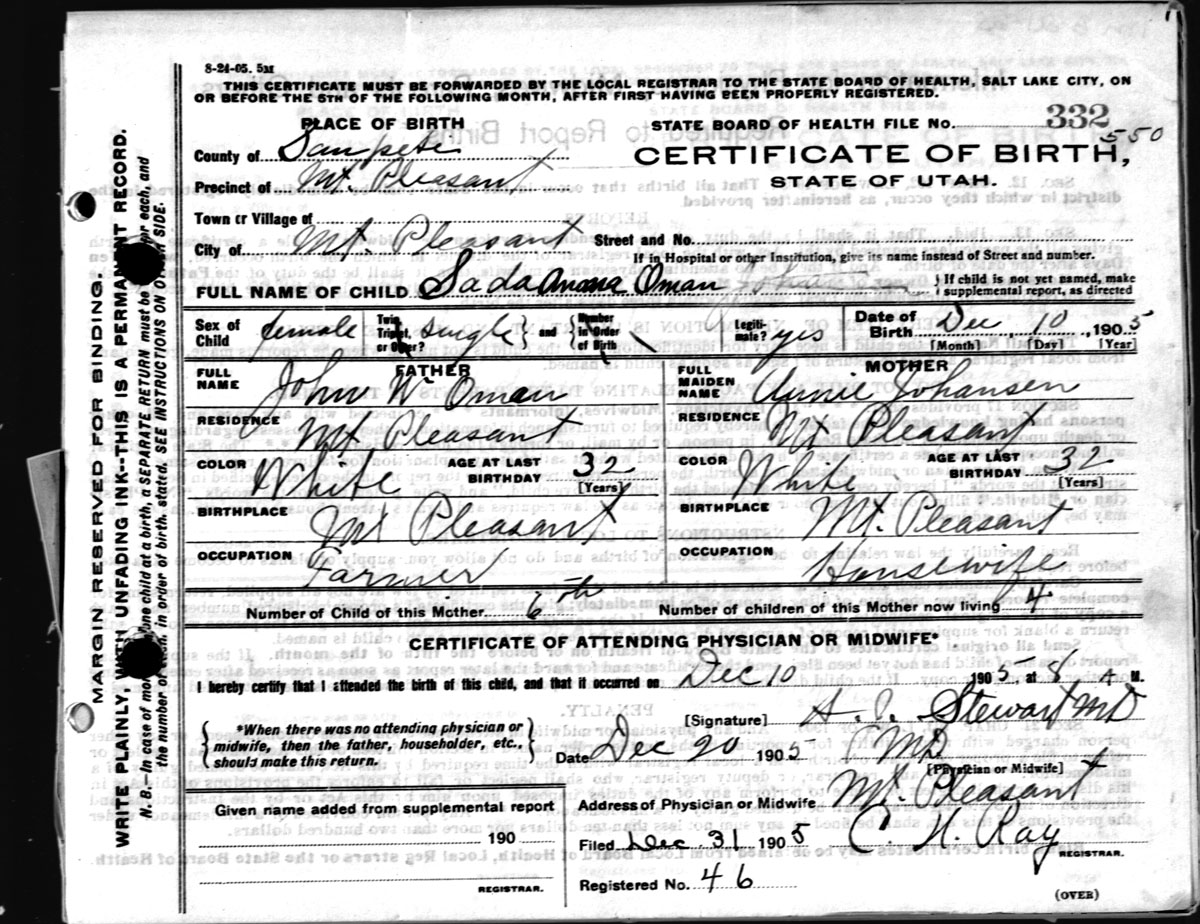 8-24-05. 5M
THIS CERTIFICATE MUST BE FORWARDED BY THE LOCAL REGISTRAR TO THE STATE BOARD OF HEALTH, SALT LAKE CITY, ON
OR BEFORE THE 5TH OF THE FOLLOWING MONTH, AFTER FIRST HAVING BEEN PROPERLY REGISTERED.
PLACE OF BIRTH
STATE BOARD OF HEALTH FILE No. 332
550
County of Sanpete
CERTIFICATE OF BIRTH,
Precinct of Mt. Pleasant
STATE OF UTAH.
Town or Village of
City of Mt. Pleasant Street and No.
If in Hospital or other Institution, give its name instead of Street and number.
FULL NAME OF CHILD Sada Oman
} If child is not yet named, make
supplemental report, as directed
Sex of Child female Twin, Triplet, or Other? Single } and { Number in Order of Birth Legitimate? yes Date of Birth Dec 10, 1905
[Month] [Day] [Year]
FATHER
MOTHER
FULL NAME John W Oman
FULL MAIDEN NAME Annie Johansen
RESIDENCE Mt Pleasant
RESIDENCE Mt Pleasant
COLOR White AGE AT LAST BIRTHDAY 32 [Years]
COLOR White AGE AT LAST BIRTHDAY 32 [Years]
BIRTHPLACE Mt Pleasant
BIRTHPLACE Mt. Pleasant
OCCUPATION Farmer
OCCUPATION Housewife
Number of Child of this Mother 6th Number of children of this Mother now living 4
CERTIFICATE OF ATTENDING PHYSICIAN OR MIDWIFE*
I hereby certify that I attended the birth of this child, and that it occurred on Dec 10 1905 at 8 A M.
{ *When there was no attending physician or
midwife, then the father, householder, etc.,
should make this return. }
[Signature] Stewart MD
Date Dec 20 1905 MD
[Physician or Midwife]
Given name added from supplemental report
190
REGISTRAR.
Address of Physician or Midwife Mt. Pleasant
Filed Dec 31 1905 C. N. Ray
REGISTRAR.
Registered No. 46
(OVER)
MARGIN RESERVED FOR BINDING.
WRITE PLAINLY, WITH UNFADING INK--THIS IS A PERMANENT RECORD.
N. B.--In case of more than one child at a birth, a SEPARATE RETURN must be for each, and
the number of each, in order of birth, stated. SEE INSTRUCTIONS ON OTHER SIDE.